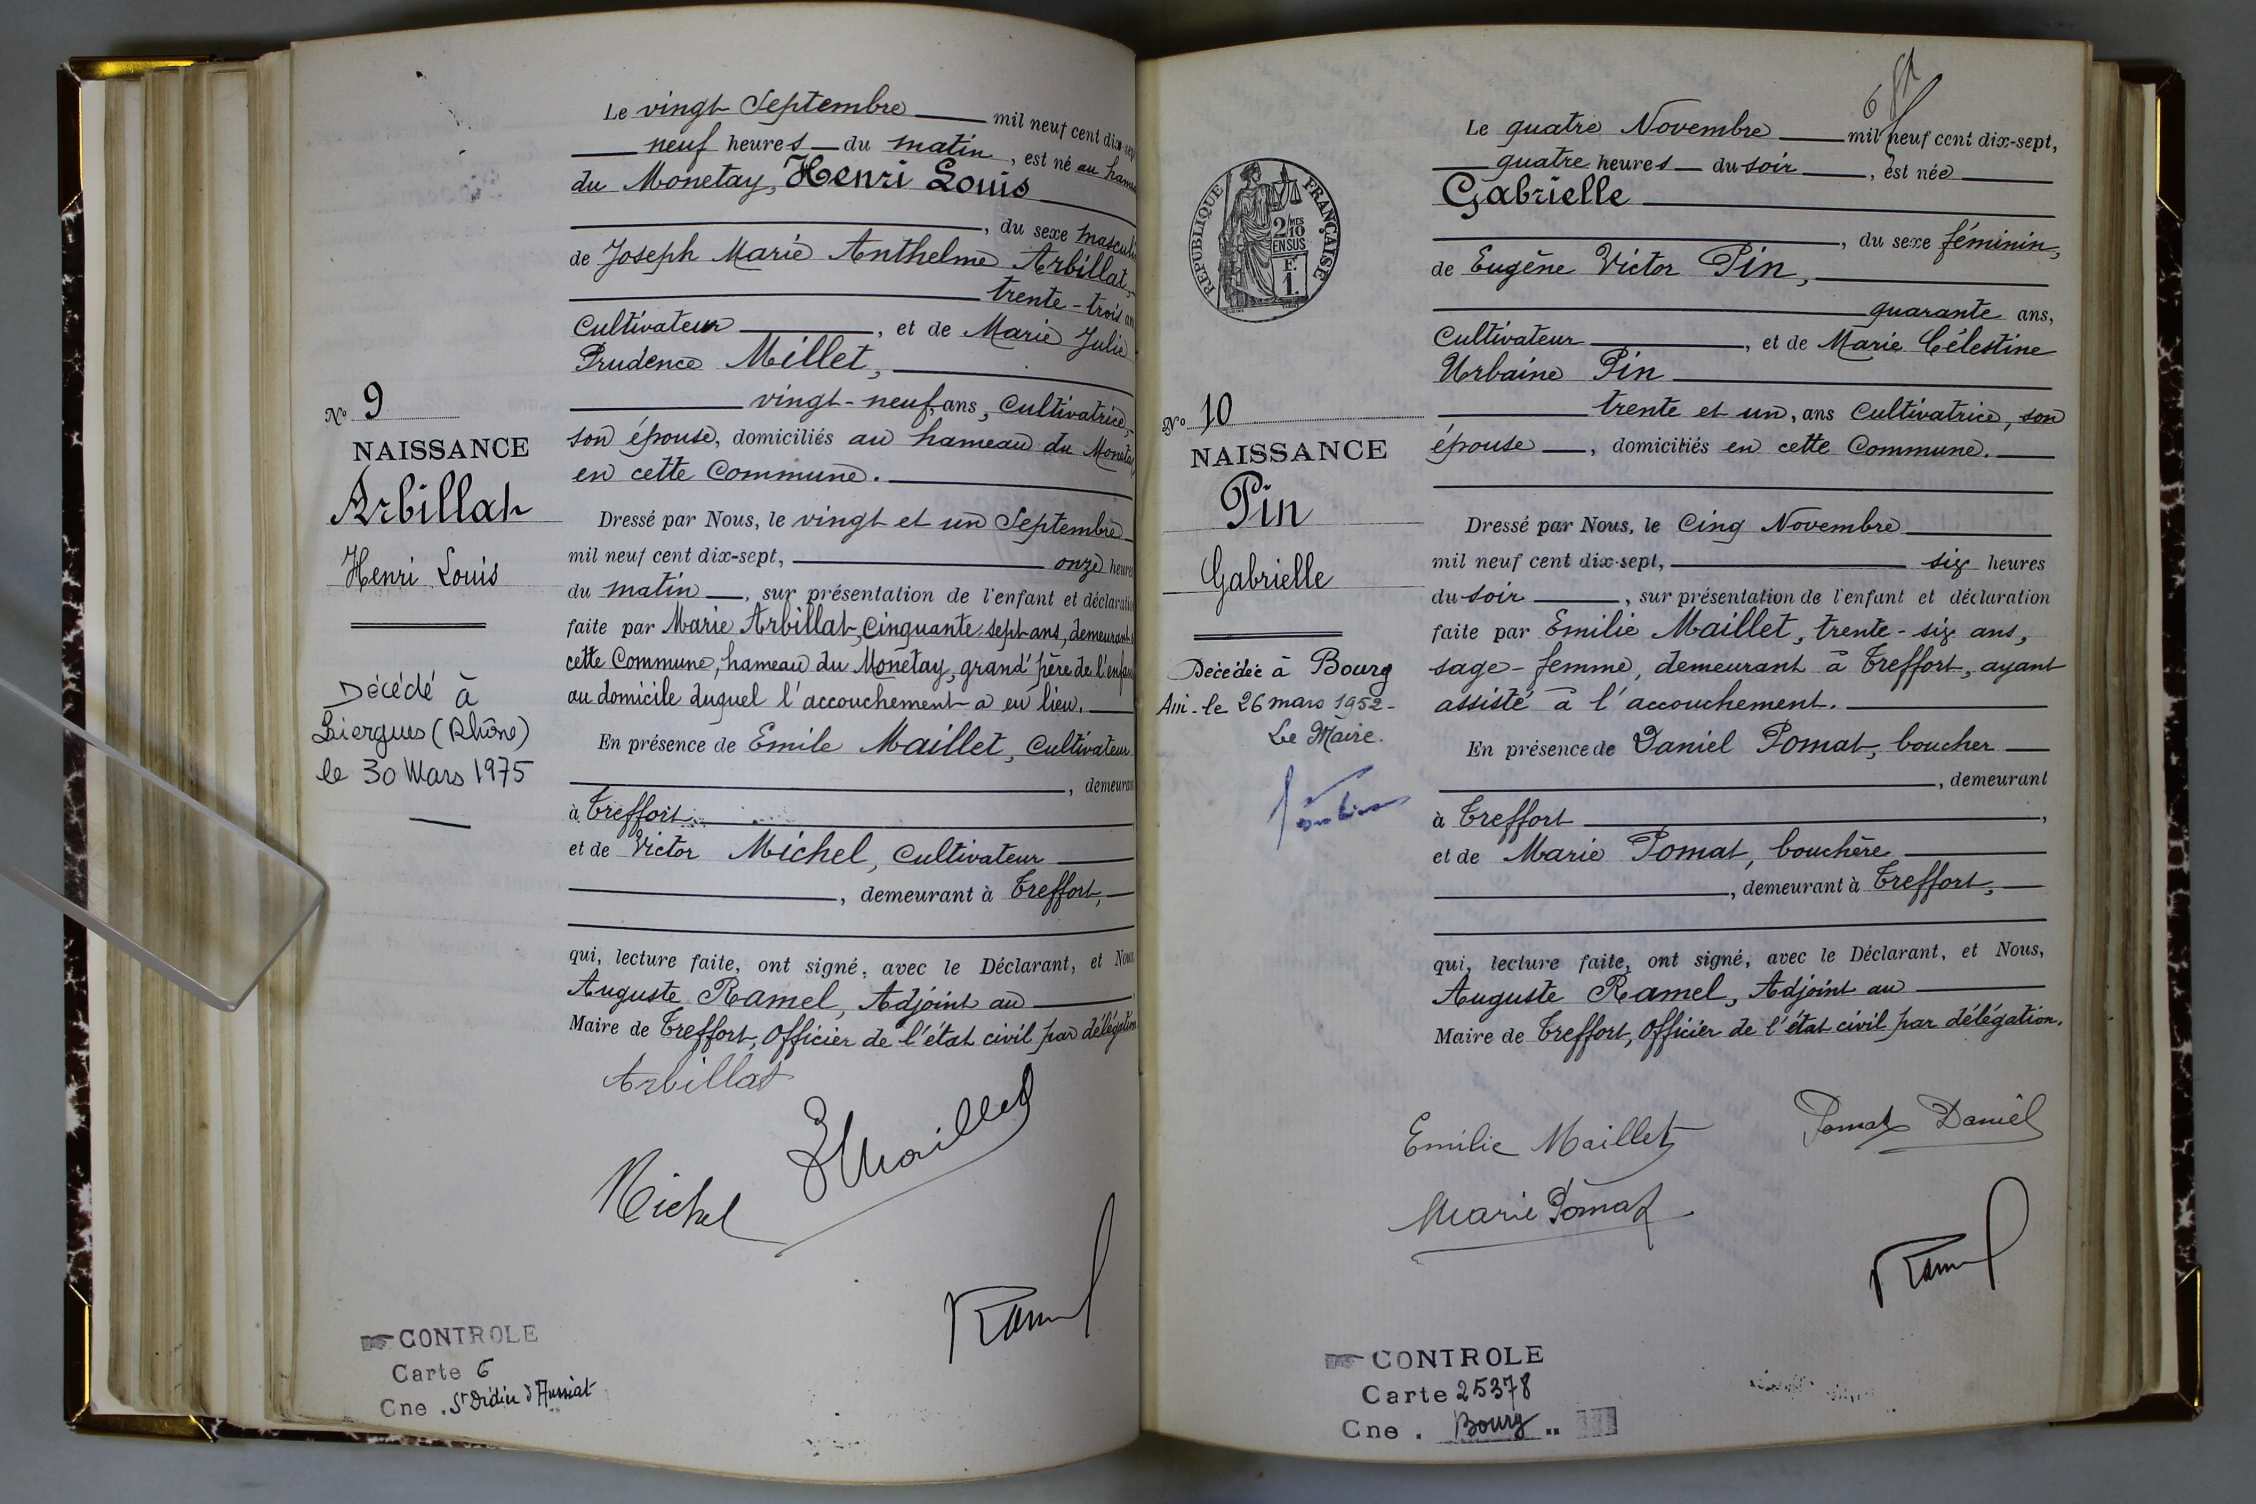 Le vingt Septembre mil neuf cent dix-sept
neuf heures du matin, est né au hameau
du Monetay, Henri Louis
, du sexe masculin
de Joseph Marie Anthelme Arbillat,
trente-trois ans
Cultivateur, et de Marie Julie
Prudence Millet,
vingt-neuf, ans, Cultivatrice,
son épouse, domiciliés au hameau du Monetay
en cette Commune.
Nº 9
NAISSANCE
Arbillat
Henri Louis
Décédé à
Liergues (Rhône)
le 30 Mars 1975
Dressé par Nous, le vingt et un Septembre
mil neuf cent dix-sept, onze heures
du matin, sur présentation de l'enfant et déclaration
faite par Marie Arbillat, Cinquante-sept ans, demeurant
cette Commune, hameau du Monetay, grand'père de l'enfant
au domicile duquel l'accouchement a eu lieu.
En présence de Emile Maillet, Cultivateur
, demeurant
à Treffort
et de Victor Michel, Cultivateur
, demeurant à Treffort,
qui, lecture faite, ont signé, avec le Déclarant, et Nous
Auguste Ramel, Adjoint au
Maire de Treffort, Officier de l'état civil par délégation
Arbillat
E Maillet
Michel
Ramel
CONTROLE
Carte 6
Cne . St Didier d'Aussiat
Le quatre Novembre mil neuf cent dix-sept,
quatre heures du soir, est née
Gabrielle
, du sexe féminin,
de Eugène Victor Pin,
quarante ans,
Cultivateur, et de Marie Célestine
Urbaine Pin
trente et un, ans Cultivatrice, son
épouse, domiciliés en cette Commune.
RÉPUBLIQUE FRANÇAISE
2/10 MES
EN SUS
F.
1.
Nº 10
NAISSANCE
Pin
Gabrielle
Décédée à Bourg
Ain - le 26 mars 1952 -
Le Maire.
Dressé par Nous, le Cinq Novembre
mil neuf cent dix-sept, six heures
du soir, sur présentation de l'enfant et déclaration
faite par Emilie Maillet, trente-six ans,
sage-femme, demeurant à Treffort, ayant
assisté à l'accouchement.
En présence de Daniel Pomat, boucher
, demeurant
à Treffort,
et de Marie Pomat, bouchère
, demeurant à Treffort,
qui, lecture faite, ont signé, avec le Déclarant, et Nous,
Auguste Ramel, Adjoint au
Maire de Treffort, Officier de l'état civil par délégation.
Emilie Maillet
Pomat Daniel
Marie Pomat
Ramel
CONTROLE
Carte 25378
Cne . Bourg